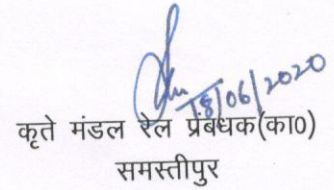 18/06/2020
कृते मंडल रेल प्रबंधक(का0)
समस्तीपुर